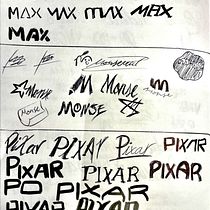 MAX MAX MAX MAX
MAX
Monse Monse monse
Monse MONSE
PIXAR PIXAR Pixar PIXAR
PIXAR PIXAR PIXAR
PO PIXAR
PIXAR PIXAR